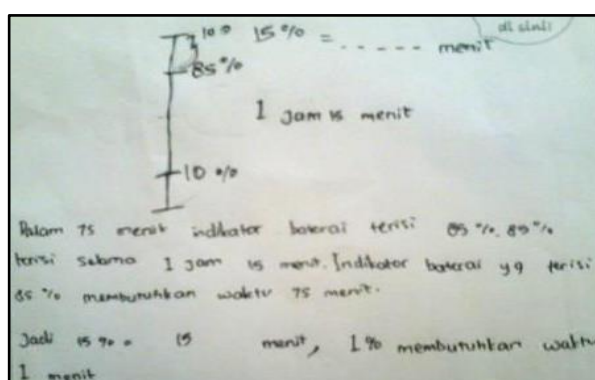 di sini:
100 15% = . . . . . . menit
85%
1 jam 15 menit
10 %
Dalam 75 menit indikator baterai terisi 85 %. 85%
terisi selama 1 jam 15 menit. Indikator baterai yg terisi
85 % membutuhkan waktu 75 menit.
Jadi 15 % = 15 menit, 1% membutuhkan waktu
1 menit